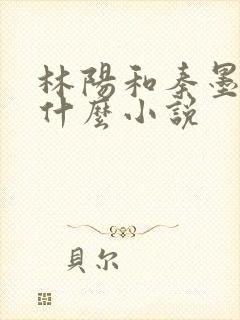 林陽和秦墨
什麼小說
貝尔